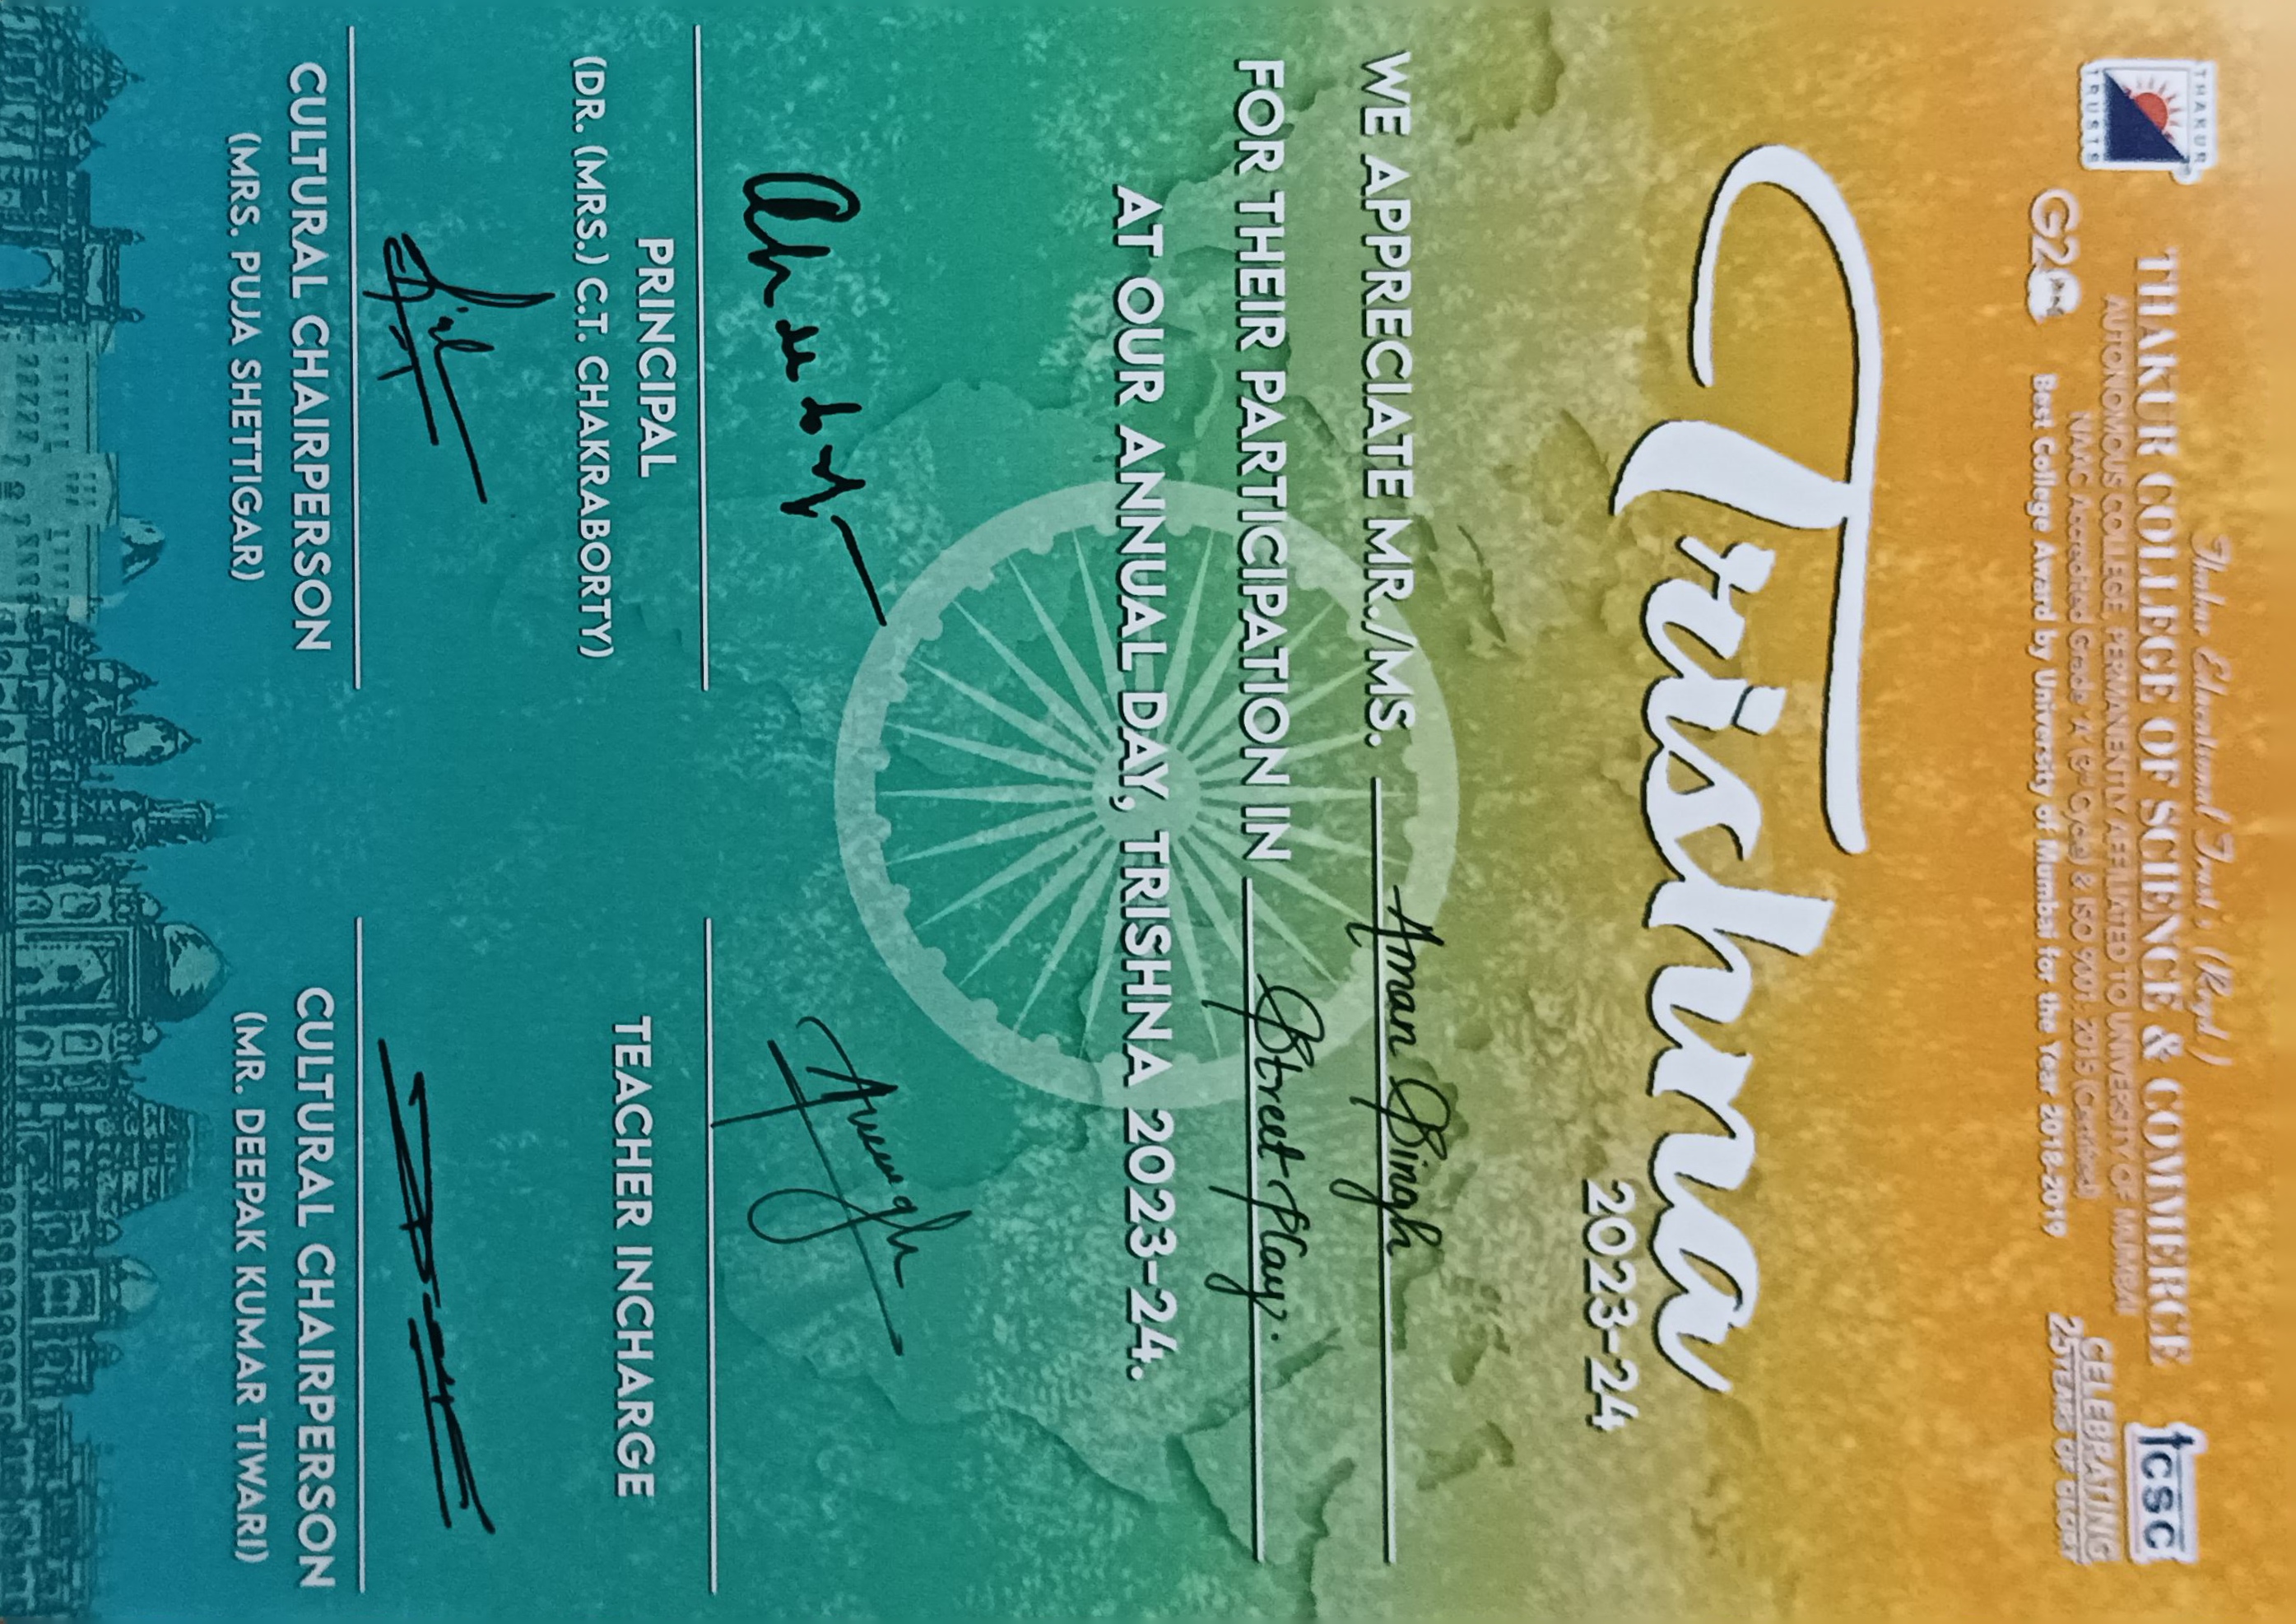 THAKUR TRUSTS
Thakur Educational Trust's (Regd.)
THAKUR COLLEGE OF SCIENCE & COMMERCE
AUTONOMOUS COLLEGE, PERMANENTLY AFFILIATED TO UNIVERSITY OF MUMBAI
NAAC Accredited Grade 'A' (3rd Cycle) & ISO 9001: 2015 (Certified)
Best College Award by University of Mumbai for the Year 2018-2019
G20
tcsc
CELEBRATING
25 YEARS OF GLORY
Trishna
2023-24
WE APPRECIATE MR./MS. Aman Singh
FOR THEIR PARTICIPATION IN Street Play.
AT OUR ANNUAL DAY, TRISHNA 2023-24.
PRINCIPAL
(DR. (MRS.) C.T. CHAKRABORTY)
TEACHER INCHARGE
CULTURAL CHAIRPERSON
(MRS. PUJA SHETTIGAR)
CULTURAL CHAIRPERSON
(MR. DEEPAK KUMAR TIWARI)